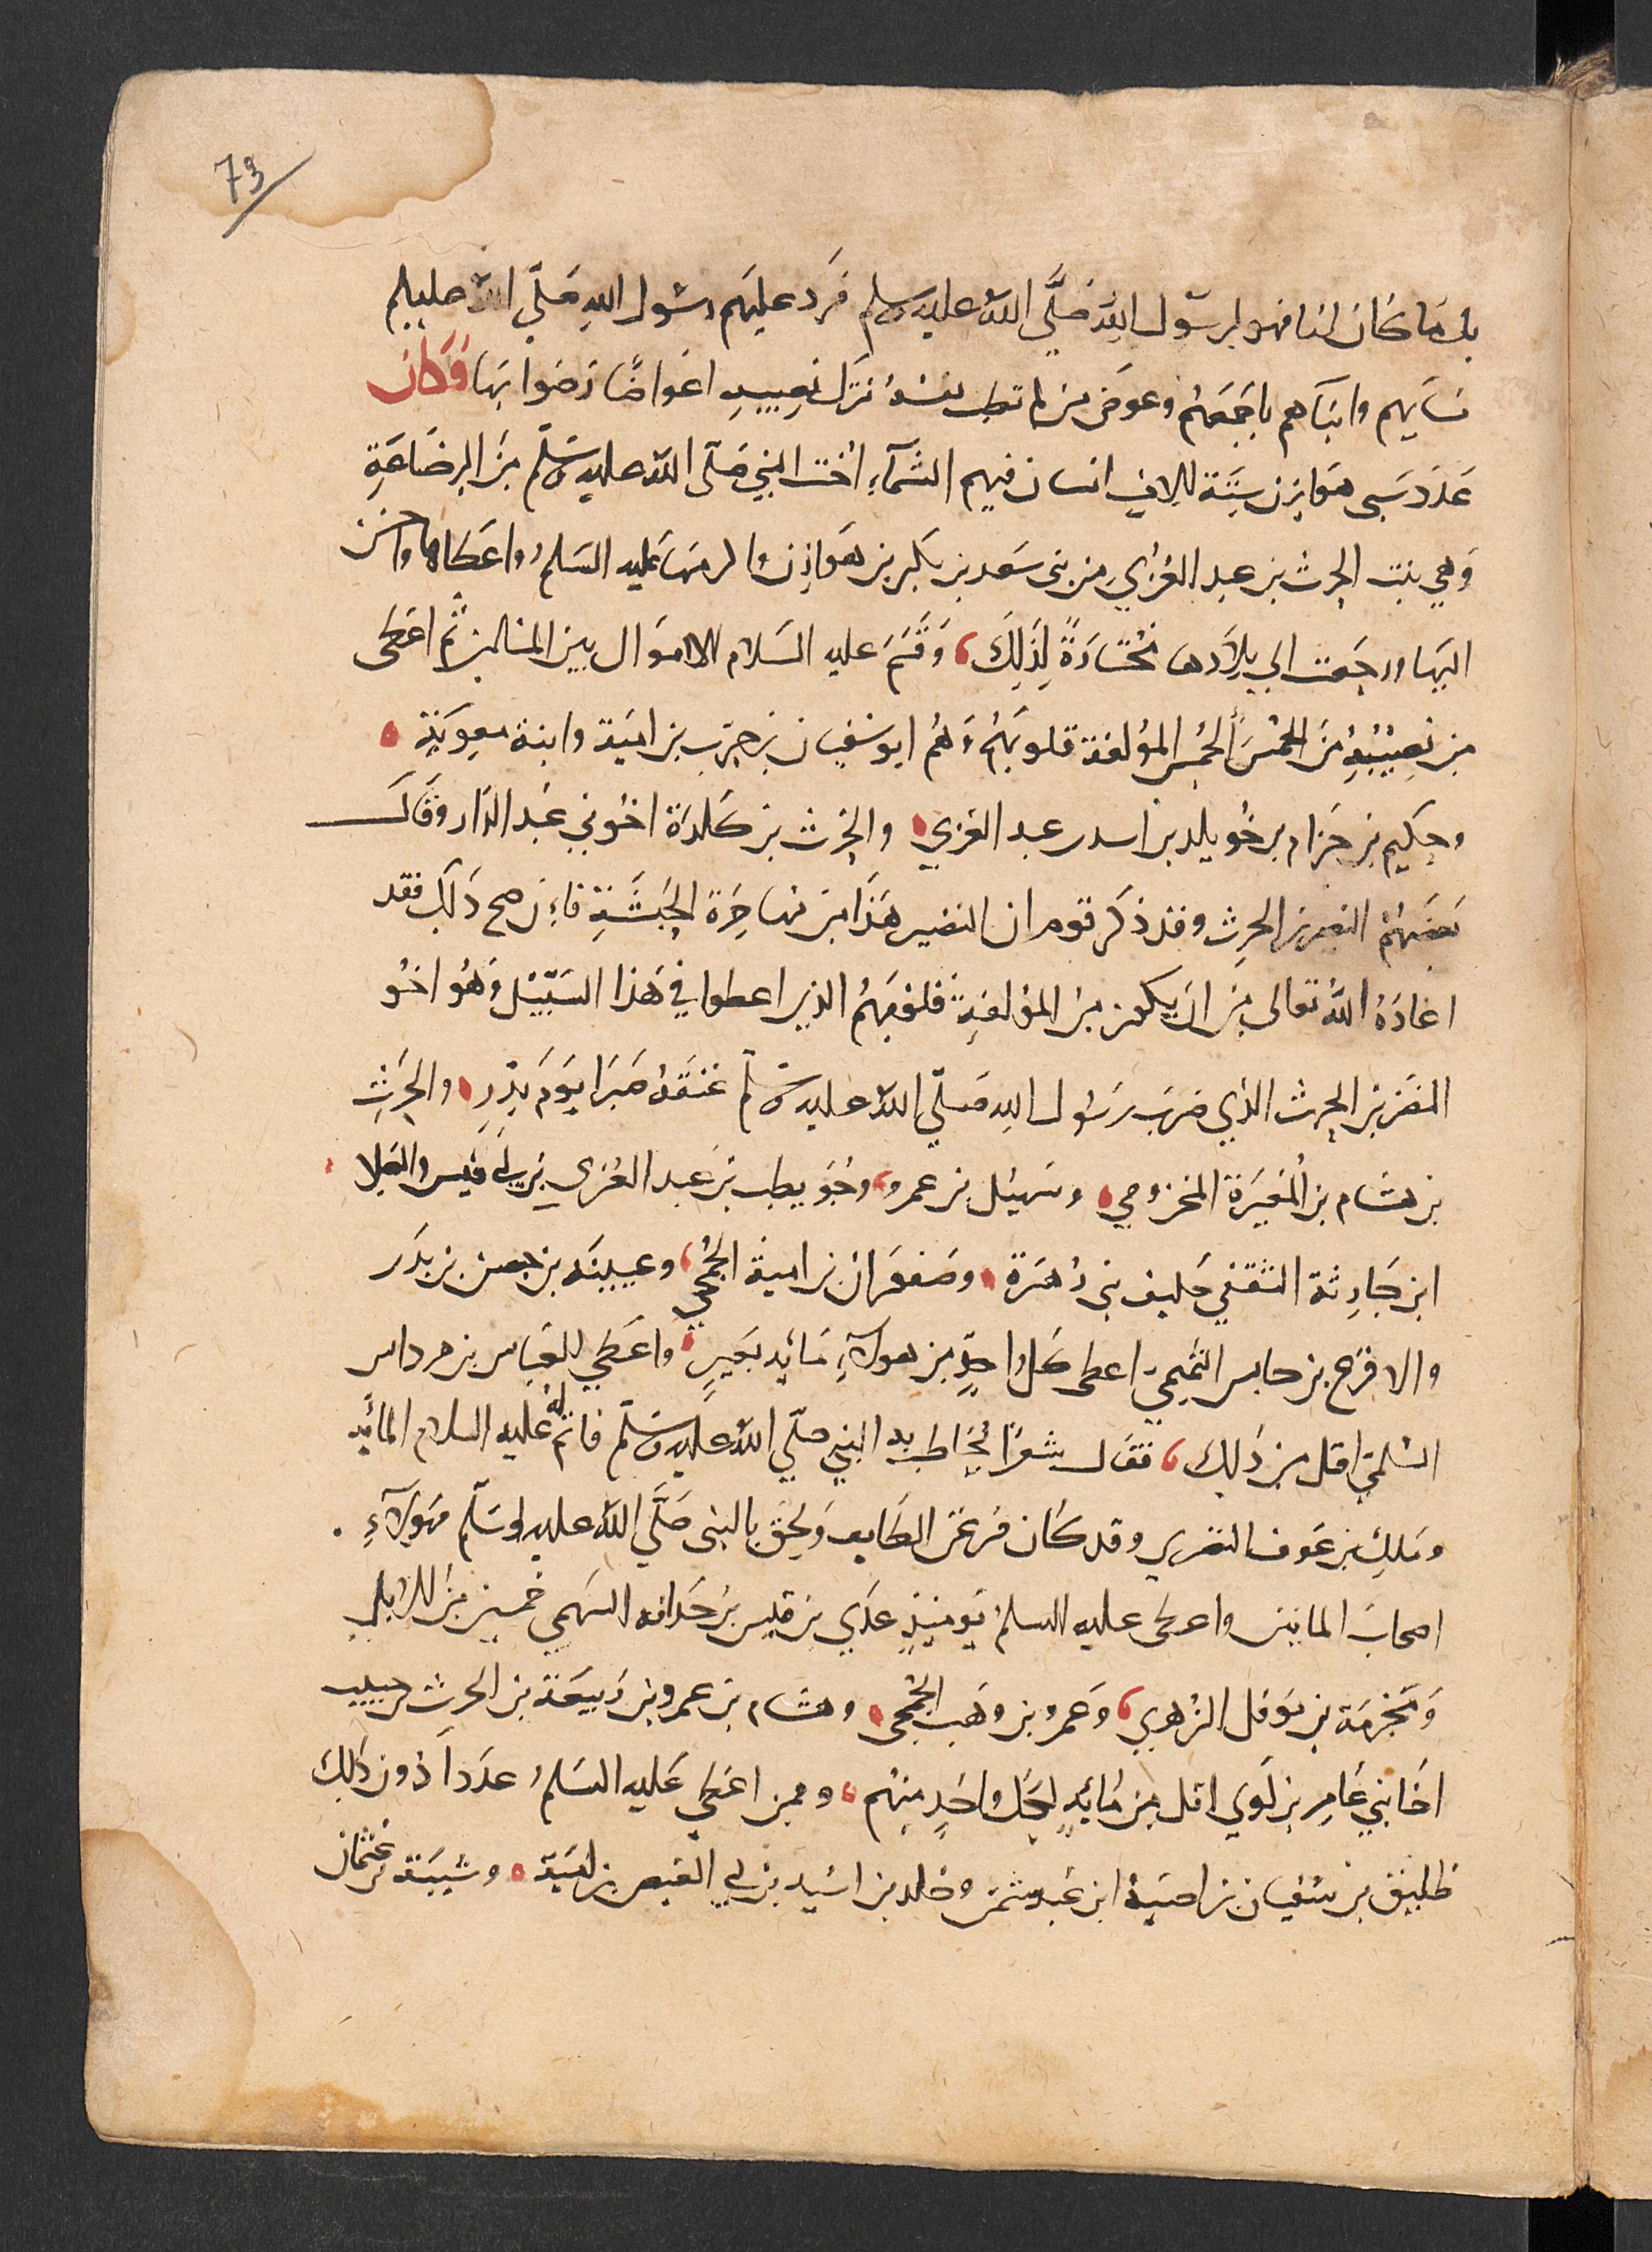 73
بل ما كان لنا فهو لرسول الله صَلَّى الله عليه وسلم فرد عليهم رسول الله صَلّي الله عليه وسلم
نسايهم وابناهم باجمعهم وعوض من لم تطب نفسه بترك نصيبه اعواضًا رضوا بها وَكَان
عَدَد سَبى هوَازن سِتَّة الاف انسان فيهم الشمآء اخت النبي صَلّى الله عليه وسَلّم مِنَ الرضَاعَةِ
وَهي بنت الحرث بن عبد العُزي من بني سَعد بن بكر بن هَوازِن واكرمها عليه السَلمُ واعَطاها واحسن
اليها ورجَعت الي بِلادها مُختارةً لِذَلِكَ، وَقَسَمَ عليه السَلام الاموَال بين المسلمين ثم اعَطى
من نصِيْبِهِ مِنَ الخُمْسَ الخمس المؤلفة قلوبَهُمُ وَهُمُ ابو سُفيان بن حرب بن اميَة وابنة معوية
وحكيم بن حزام بن خُويلد بن اسد بن عبد العزي والحرث بن كَلدة اخُو بني عَبد الدَار وقال
بَعَضهُمْ النضير بن الحرثِ وقد ذكر قوم ان النضير هَذَا من مهاجِرَة الحَبشَةِ فاِن صح ذَلكَ فقد
اعاذَهُ اللهُ تعالى مِن ان يكون من المؤلفةِ قلوبَهُمُ الذين اعطوا في هَذا السَبِيْل وَهُو اخُو
النضر بن الحرث الذي ضرب رَسُول الله صَلّي الله عليه وسَلّم عنقهُ صَبرَا يَومَ بَدرِ والحَرثِ
بن هشام بن المُغيرَة المخزومي وسُهيْل بن عمرو، وحُوَيطب بن عبد العُزى بن ابي قيس والعلا
ابن جَارِثة الثقفي حَليف بني زُهرَة وصَفوَان بن امية الجُمَحي، وعيينَه بن حصن بن بدَر
والاقرَع بن حابس التميمي اعطى كل واحِدٍ من هولآءِ مَائه بَعَيرٍ واعَطي للعَباس بن مرداس
السُلمي اقل من ذَلك، فقال شعرًا يُخاطب به النبي صلّي الله عليه وسَلّم فاتم لهُ عليه السلام المائه
ومَلك بن عوف النصري وقد كان فر عَن الطَايف وَلحِق بالنبي صَلَّي الله عليه وسَلّم فهولآءِ
اصحاب الماتين واعطى عليه السلمُ يَوميئذٍ عدَي بن قيس بن حَدافه السهمي خمسين من الابل
وَمَخرمَة بن نوفل الزُهري، وَعمرو بن وَهَب الجُمحى وهشام بن عمرو بن رَبيعَة بن الحرث بن حبيب
اخَا بَني عَامِر بن لوَي اقل مِن مَائهٍ لِكُل واحَدٍ مِنهُم، وممن اعَطي عَليه السَلمُ عدَداَ دُون ذلكَ
طليق بن سُفيان بن اميَة ابن عَبد شمس وخلد بن اسَيد بن ابي العيص بن اميَة وشيبَة بن عثمَان